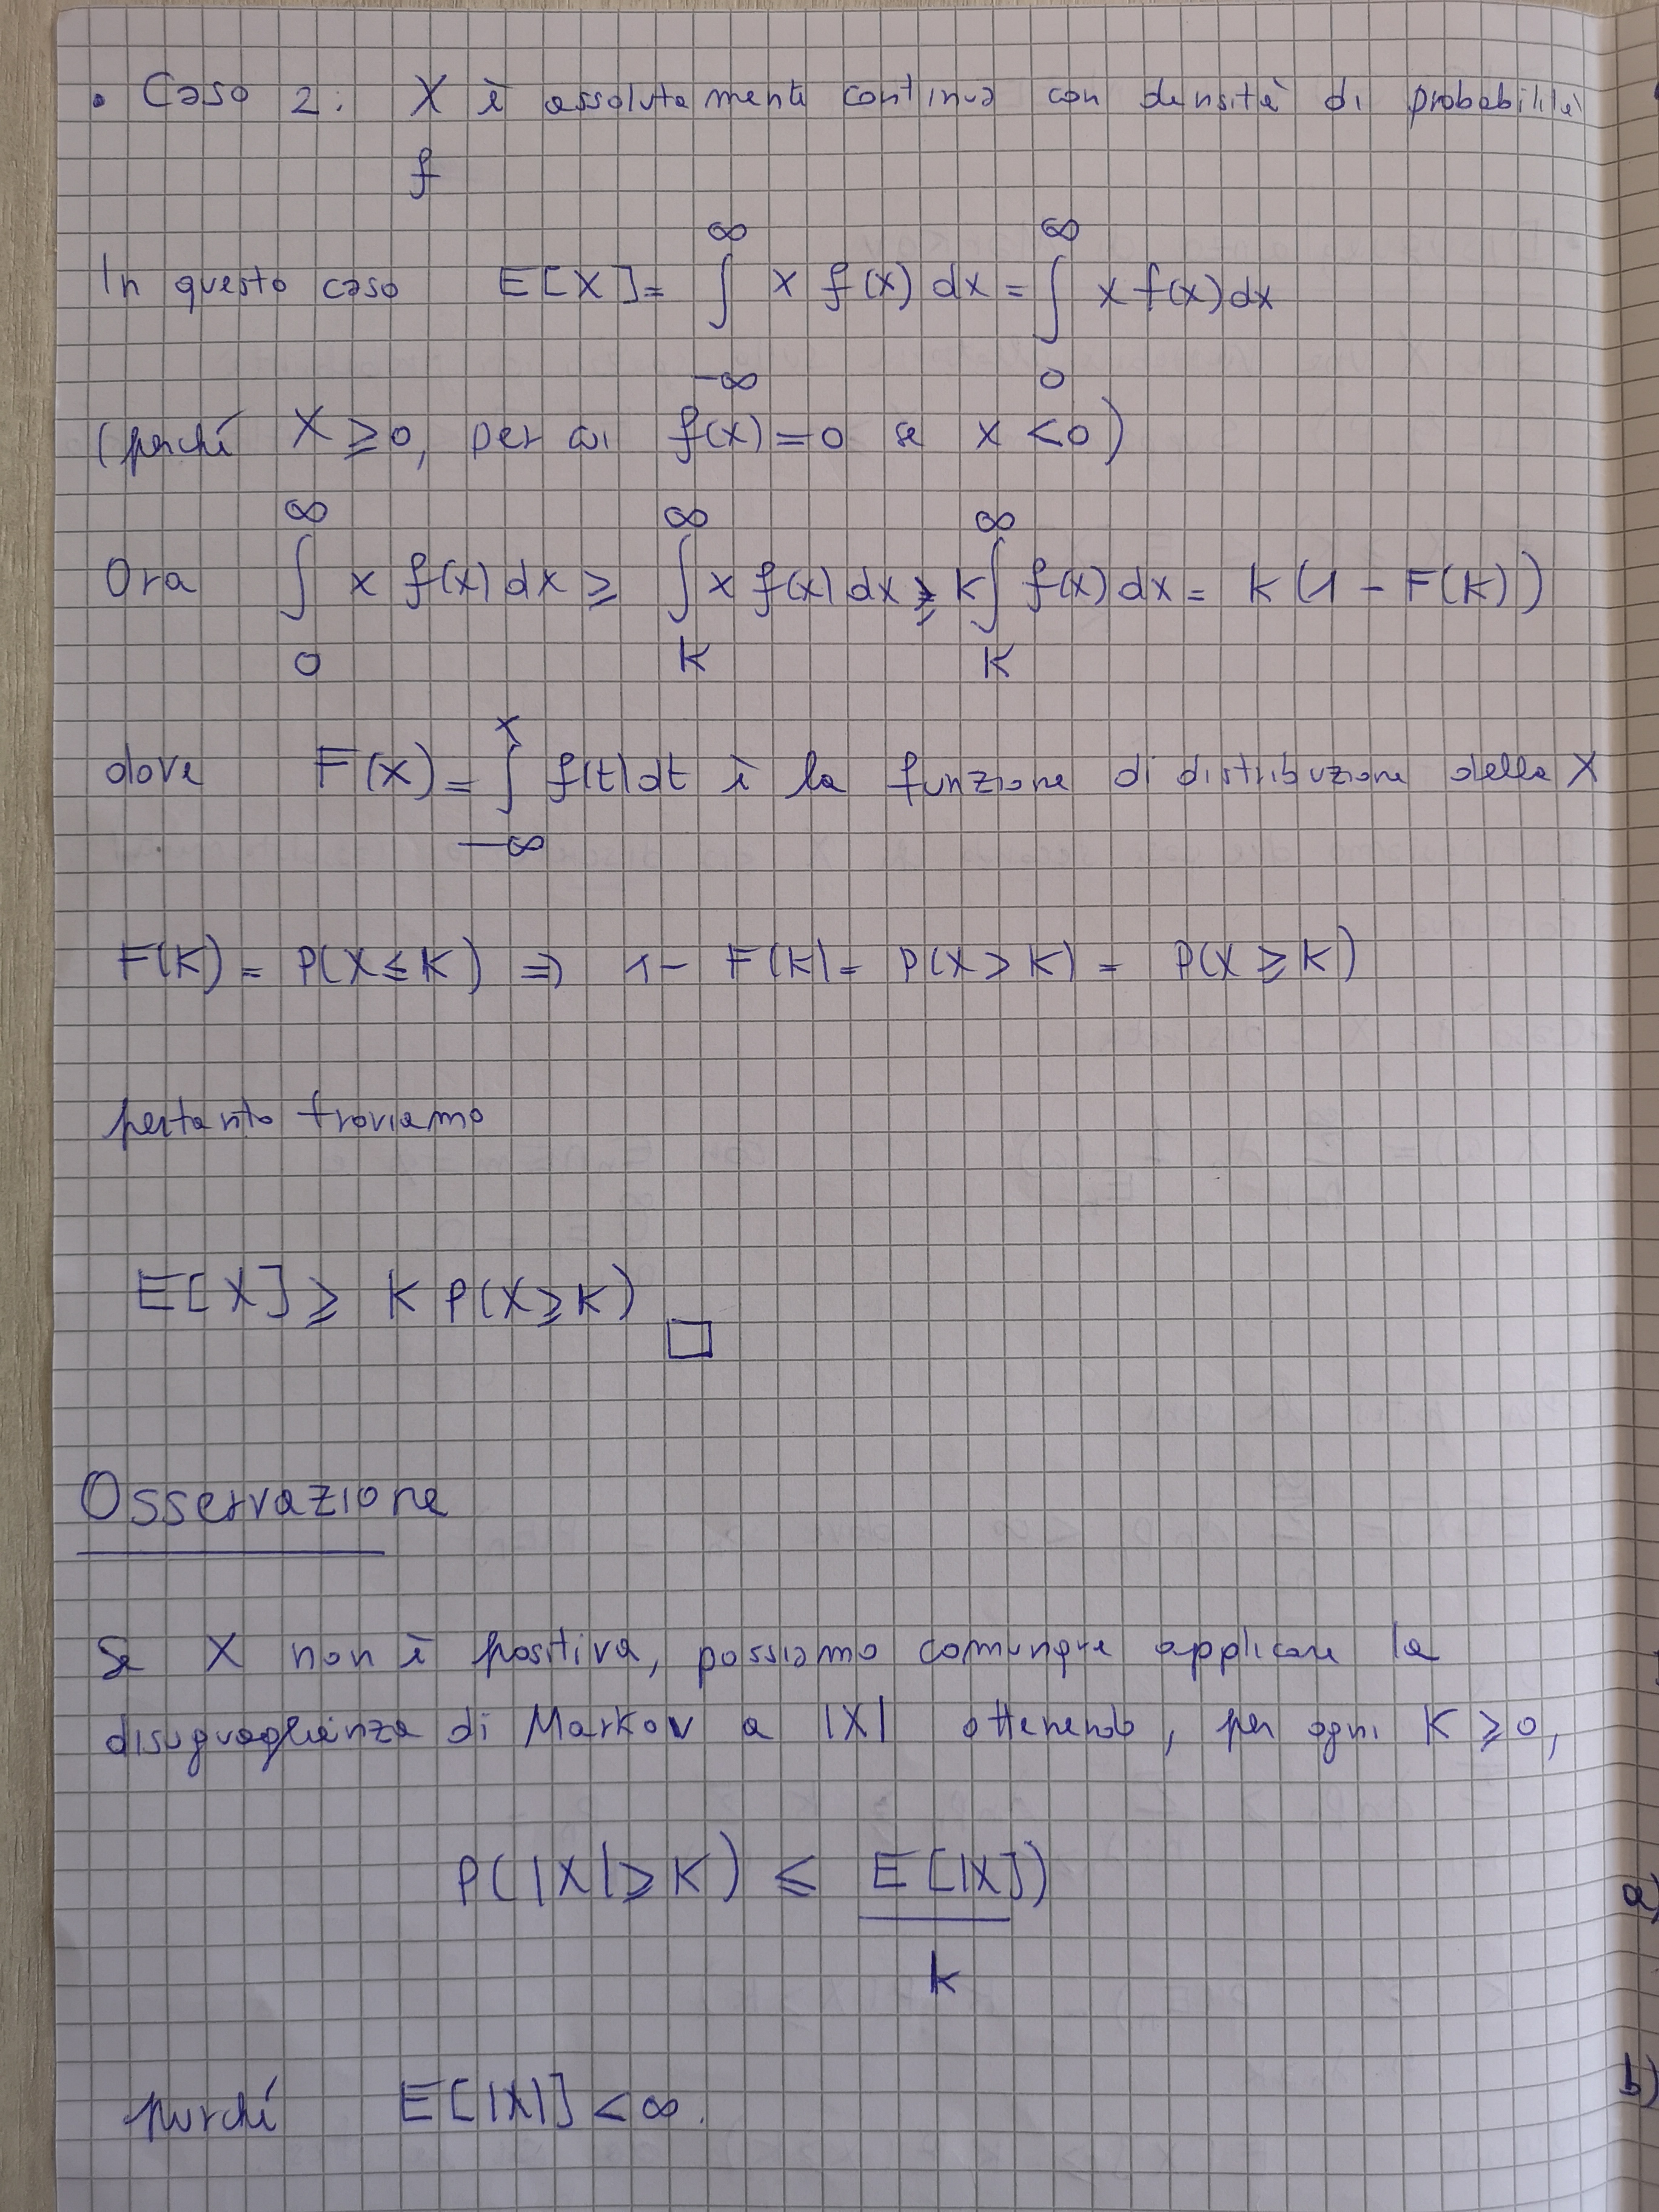 • Caso 2: X è assolutamente continua con densità di probabilità
f
In questo caso E[X] = ∫_{-∞}^{∞} x f(x) dx = ∫_{0}^{∞} x f(x) dx
(perché X ≥ 0, per cui f(x) = 0 se x < 0)
Ora ∫_{0}^{∞} x f(x) dx ≥ ∫_{K}^{∞} x f(x) dx ≥ K ∫_{K}^{∞} f(x) dx = K (1 - F(K))
dove F(x) = ∫_{-∞}^{x} f(t) dt è la funzione di distribuzione della X
F(K) = P(X ≤ K) ⇒ 1 - F(K) = P(X > K) = P(X ≥ K)
pertanto troviamo
E[X] ≥ K P(X ≥ K) □
Osservazione
Se X non è positiva, possiamo comunque applicare la
disuguaglianza di Markov a |X| ottenendo, per ogni K ≥ 0,
P(|X| ≥ K) ≤ E[|X|])
k
purché E[|X|] < ∞.
a)
b)